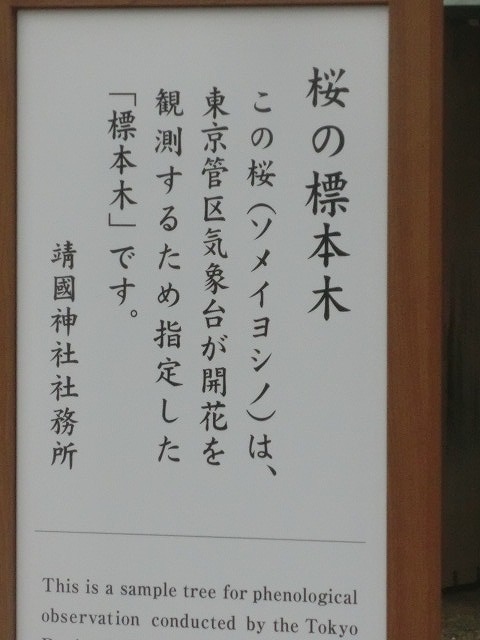 桜の標本木
この桜（ソメイヨシノ）は、
東京管区気象台が開花を
観測するため指定した
「標本木」です。
靖國神社社務所
This is a sample tree for phenological
observation conducted by the Tokyo